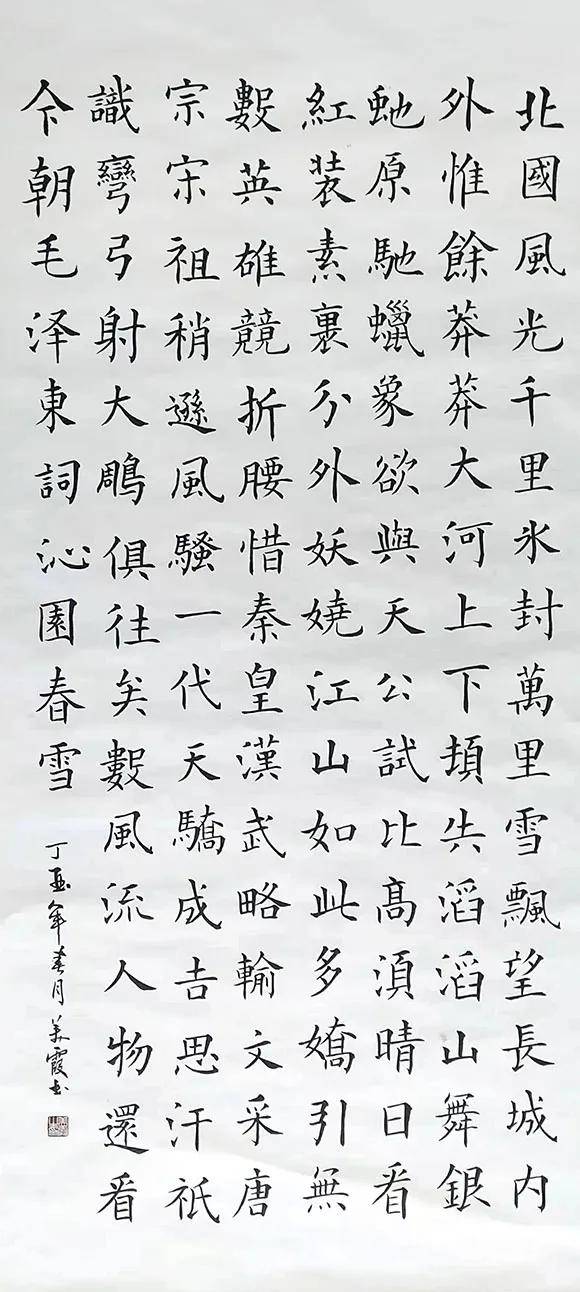 北國風光千里氷封萬里雪飄望長城内
外惟餘莽莽大河上下頓失滔滔山舞銀
虵原馳蠟象欲與天公試比髙須晴日看
紅装素裹分外妖嬈江山如此多嬌引無
數英雄競折腰惜秦皇漢武略輸文采唐
宗宋祖稍遜風騷一代天驕成吉思汗祇
識彎弓射大鵰俱往矣數風流人物還看
今朝毛泽東詞沁園春雪
丁酉年春月美霞书